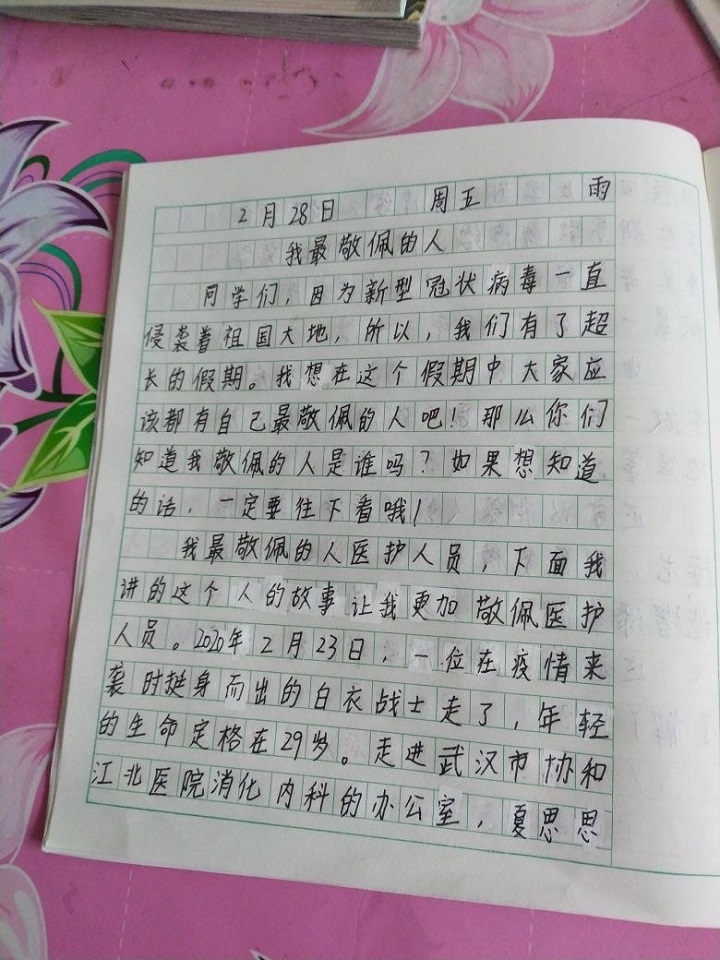 2月28日 周五 雨
我最敬佩的人
同学们，因为新型冠状病毒一直
侵袭着祖国大地，所以，我们有了超
长的假期。我想在这个假期中大家应
该都有自己最敬佩的人吧！那么你们
知道我敬佩的人是谁吗？如果想知道
的话，一定要往下看哦！
我最敬佩的人医护人员，下面我
讲的这个人的故事让我更加敬佩医护
人员。2020年2月23日，一位在疫情来
袭时挺身而出的白衣战士走了，年轻
的生命定格在29岁。走进武汉市协和
江北医院消化内科的办公室，夏思思